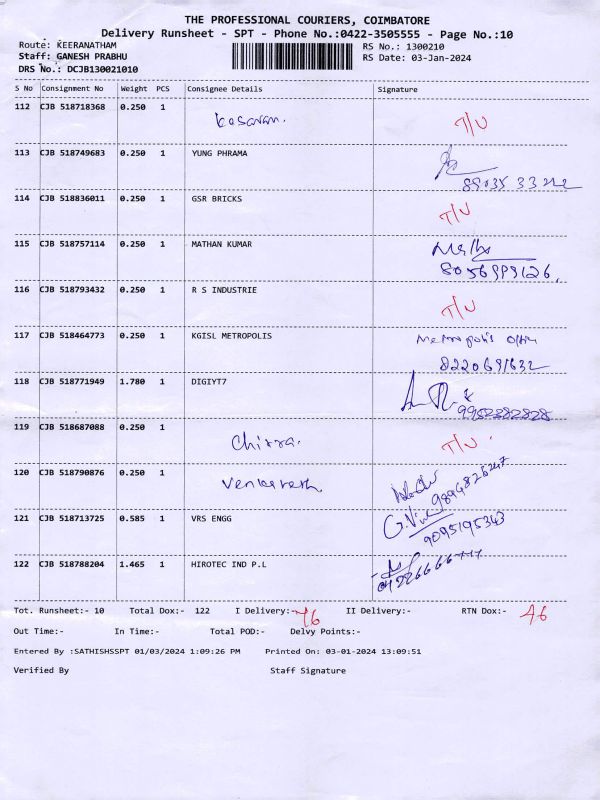 THE PROFESSIONAL COURIERS, COIMBATORE
Delivery Runsheet - SPT - Phone No.:0422-3505555 - Page No.:10
Route: KEERANATHAM RS No.: 1300210
Staff: GANESH PRABHU RS Date: 03-Jan-2024
DRS No.: DCJB130021010
S No Consignment No Weight PCS Consignee Details Signature
112 CJB 518718368 0.250 1 Kesavan. T/U
113 CJB 518749683 0.250 1 YUNG PHRAMA
114 CJB 518836011 0.250 1 GSR BRICKS T/U
115 CJB 518757114 0.250 1 MATHAN KUMAR
8056999126.
116 CJB 518793432 0.250 1 R S INDUSTRIE T/U
117 CJB 518464773 0.250 1 KGISL METROPOLIS Metropolis
8220691632
118 CJB 518771949 1.780 1 DIGIYT7
9952382828
119 CJB 518687088 0.250 1 Chitra. T/U
120 CJB 518790876 0.250 1 Venkatesh 9894826247
121 CJB 518713725 0.585 1 VRS ENGG
9095195343
122 CJB 518788204 1.465 1 HIROTEC IND P.L
Tot. Runsheet:- 10 Total Dox:- 122 I Delivery:- 76 II Delivery:- RTN Dox:- 46
Out Time:- In Time:- Total POD:- Delvy Points:-
Entered By :SATHISHSSPT 01/03/2024 1:09:26 PM Printed On: 03-01-2024 13:09:51
Verified By Staff Signature